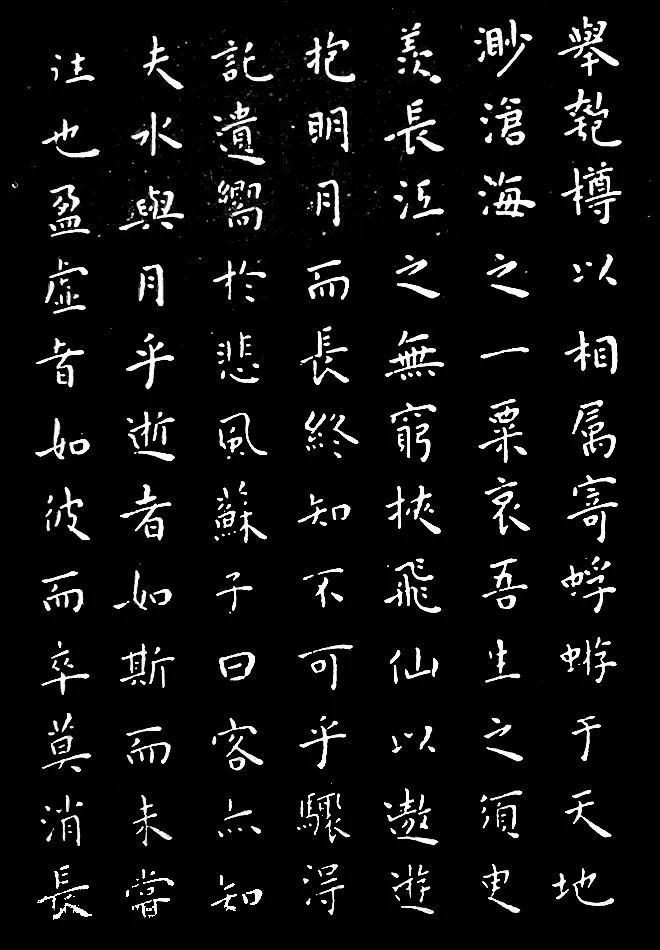 舉匏樽以相属寄蜉蝣于天地
渺滄海之一粟哀吾生之須臾
羨長江之無窮挾飛仙以遨遊
抱明月而長終知不可乎驟得
託遺嚮於悲風蘇子曰客亦知
夫水與月乎逝者如斯而未嘗
往也盈虛者如彼而卒莫消長